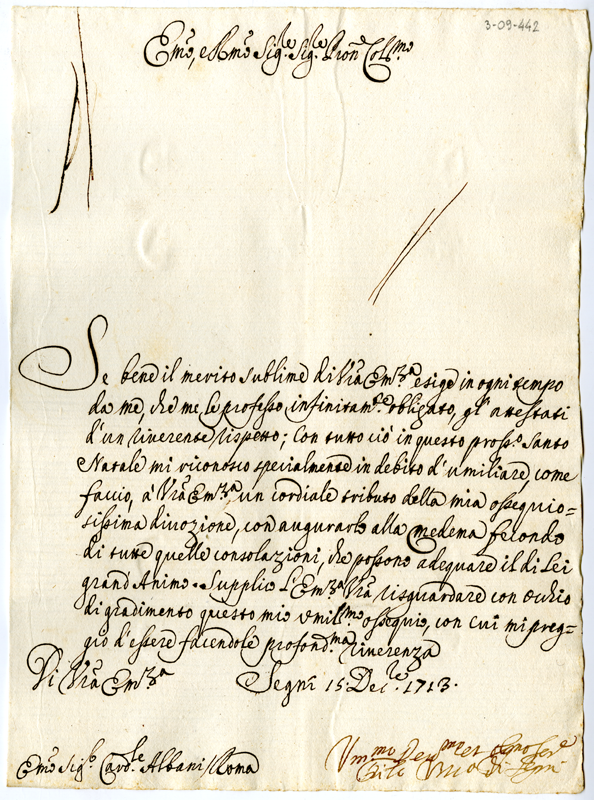 3-09-442
Emo, e Rmo Sigre Sigre Pron Colmo
Se bene il merito sublime di Vra Emza esige in ogni tempo
da me, che me le professo infinitamte obligato, gl'attestati
d'un riverente rispetto; Con tutto ciò in questo prosso Santo
Natale mi riconosco specialmente in debito d'umiliare, come
faccio, à Vra Emza un cordiale tributo della mia ossequio=
sissima divozione, con augurarlo alla medema fecondo
di tutte quelle consolazioni, che possono adeguare il di Lei
grand'Animo. Supplico l'Emza Vra risguardare con occhio
di gradimento questo mio umilmo ossequio, con cui mi preg=
gio d'essere facendole profondma riverenza
Di Vra Emza Segni 15 Decre 1713.
Emo Sigr Cardle Albani / Roma
Ummo Devmo et
di Segni